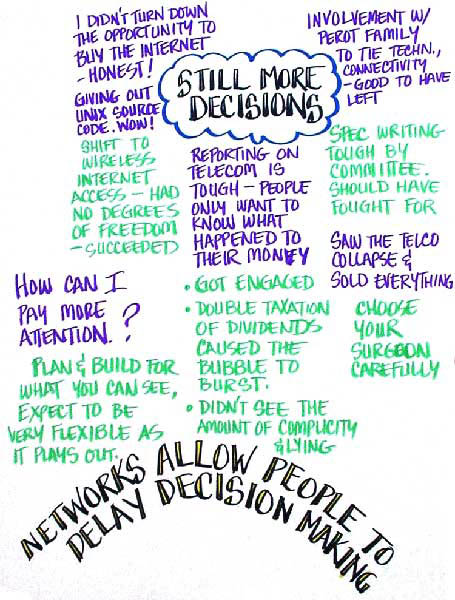 I DIDN'T TURN DOWN
THE OPPORTUNITY TO
BUY THE INTERNET
- HONEST!
GIVING OUT
UNIX SOURCE
CODE. WOW!
SHIFT TO
WIRELESS
INTERNET
ACCESS - HAD
NO DEGREES
OF FREEDOM
- SUCCEEDED
STILL MORE
DECISIONS
INVOLVEMENT W/
PEROT FAMILY
TO TIE TECHN.,
CONNECTIVITY
- GOOD TO HAVE
LEFT
REPORTING ON
TELECOM IS
TOUGH - PEOPLE
ONLY WANT TO
KNOW WHAT
HAPPENED TO
THEIR MONEY
SPEC WRITING
TOUGH BY
COMMITTEE.
SHOULD HAVE
FOUGHT FOR
SAW THE TELCO
COLLAPSE &
SOLD EVERYTHING
HOW CAN I
PAY MORE
ATTENTION.?
• GOT ENGAGED
• DOUBLE TAXATION
OF DIVIDENDS
CAUSED THE
BUBBLE TO
BURST.
• DIDN'T SEE THE
AMOUNT OF COMPLICITY
& LYING
CHOOSE
YOUR
SURGEON
CAREFULLY
PLAN & BUILD FOR
WHAT YOU CAN SEE,
EXPECT TO BE
VERY FLEXIBLE AS
IT PLAYS OUT.
NETWORKS ALLOW PEOPLE TO
DELAY DECISION MAKING